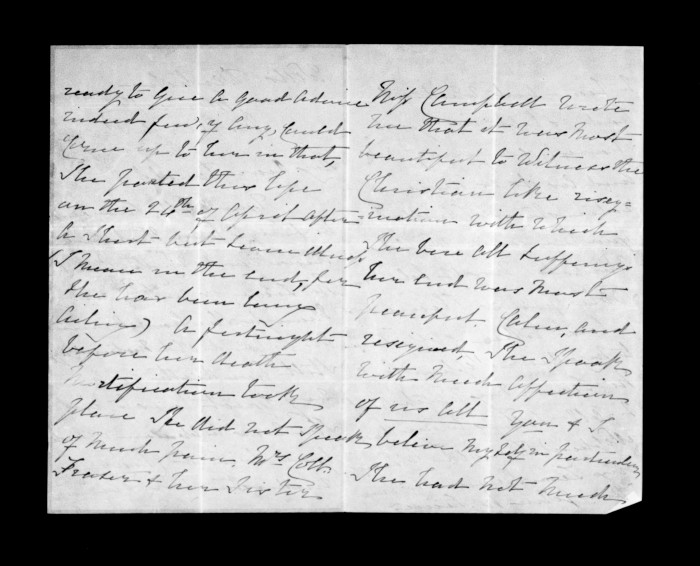 ready to give a good advice
indeed few, if any, could
come up to her in that,
She parted this life
on the 24th of April after
a short but severe illness
(I mean in the end, for
she has been long
ailing) A fortnight
before her death
mortification took
place She did not speak
of much pain. Mrs Coll.
Fraser & her sister
Miss Campbell wrote
me that it was most
beautiful to witness the
Christian like resig=
nation with which
She bore all sufferings
her end was most
peaceful. Calm, and
resigned, She spook
with much affection
of us all You & I
believe myself in particular
She had not much